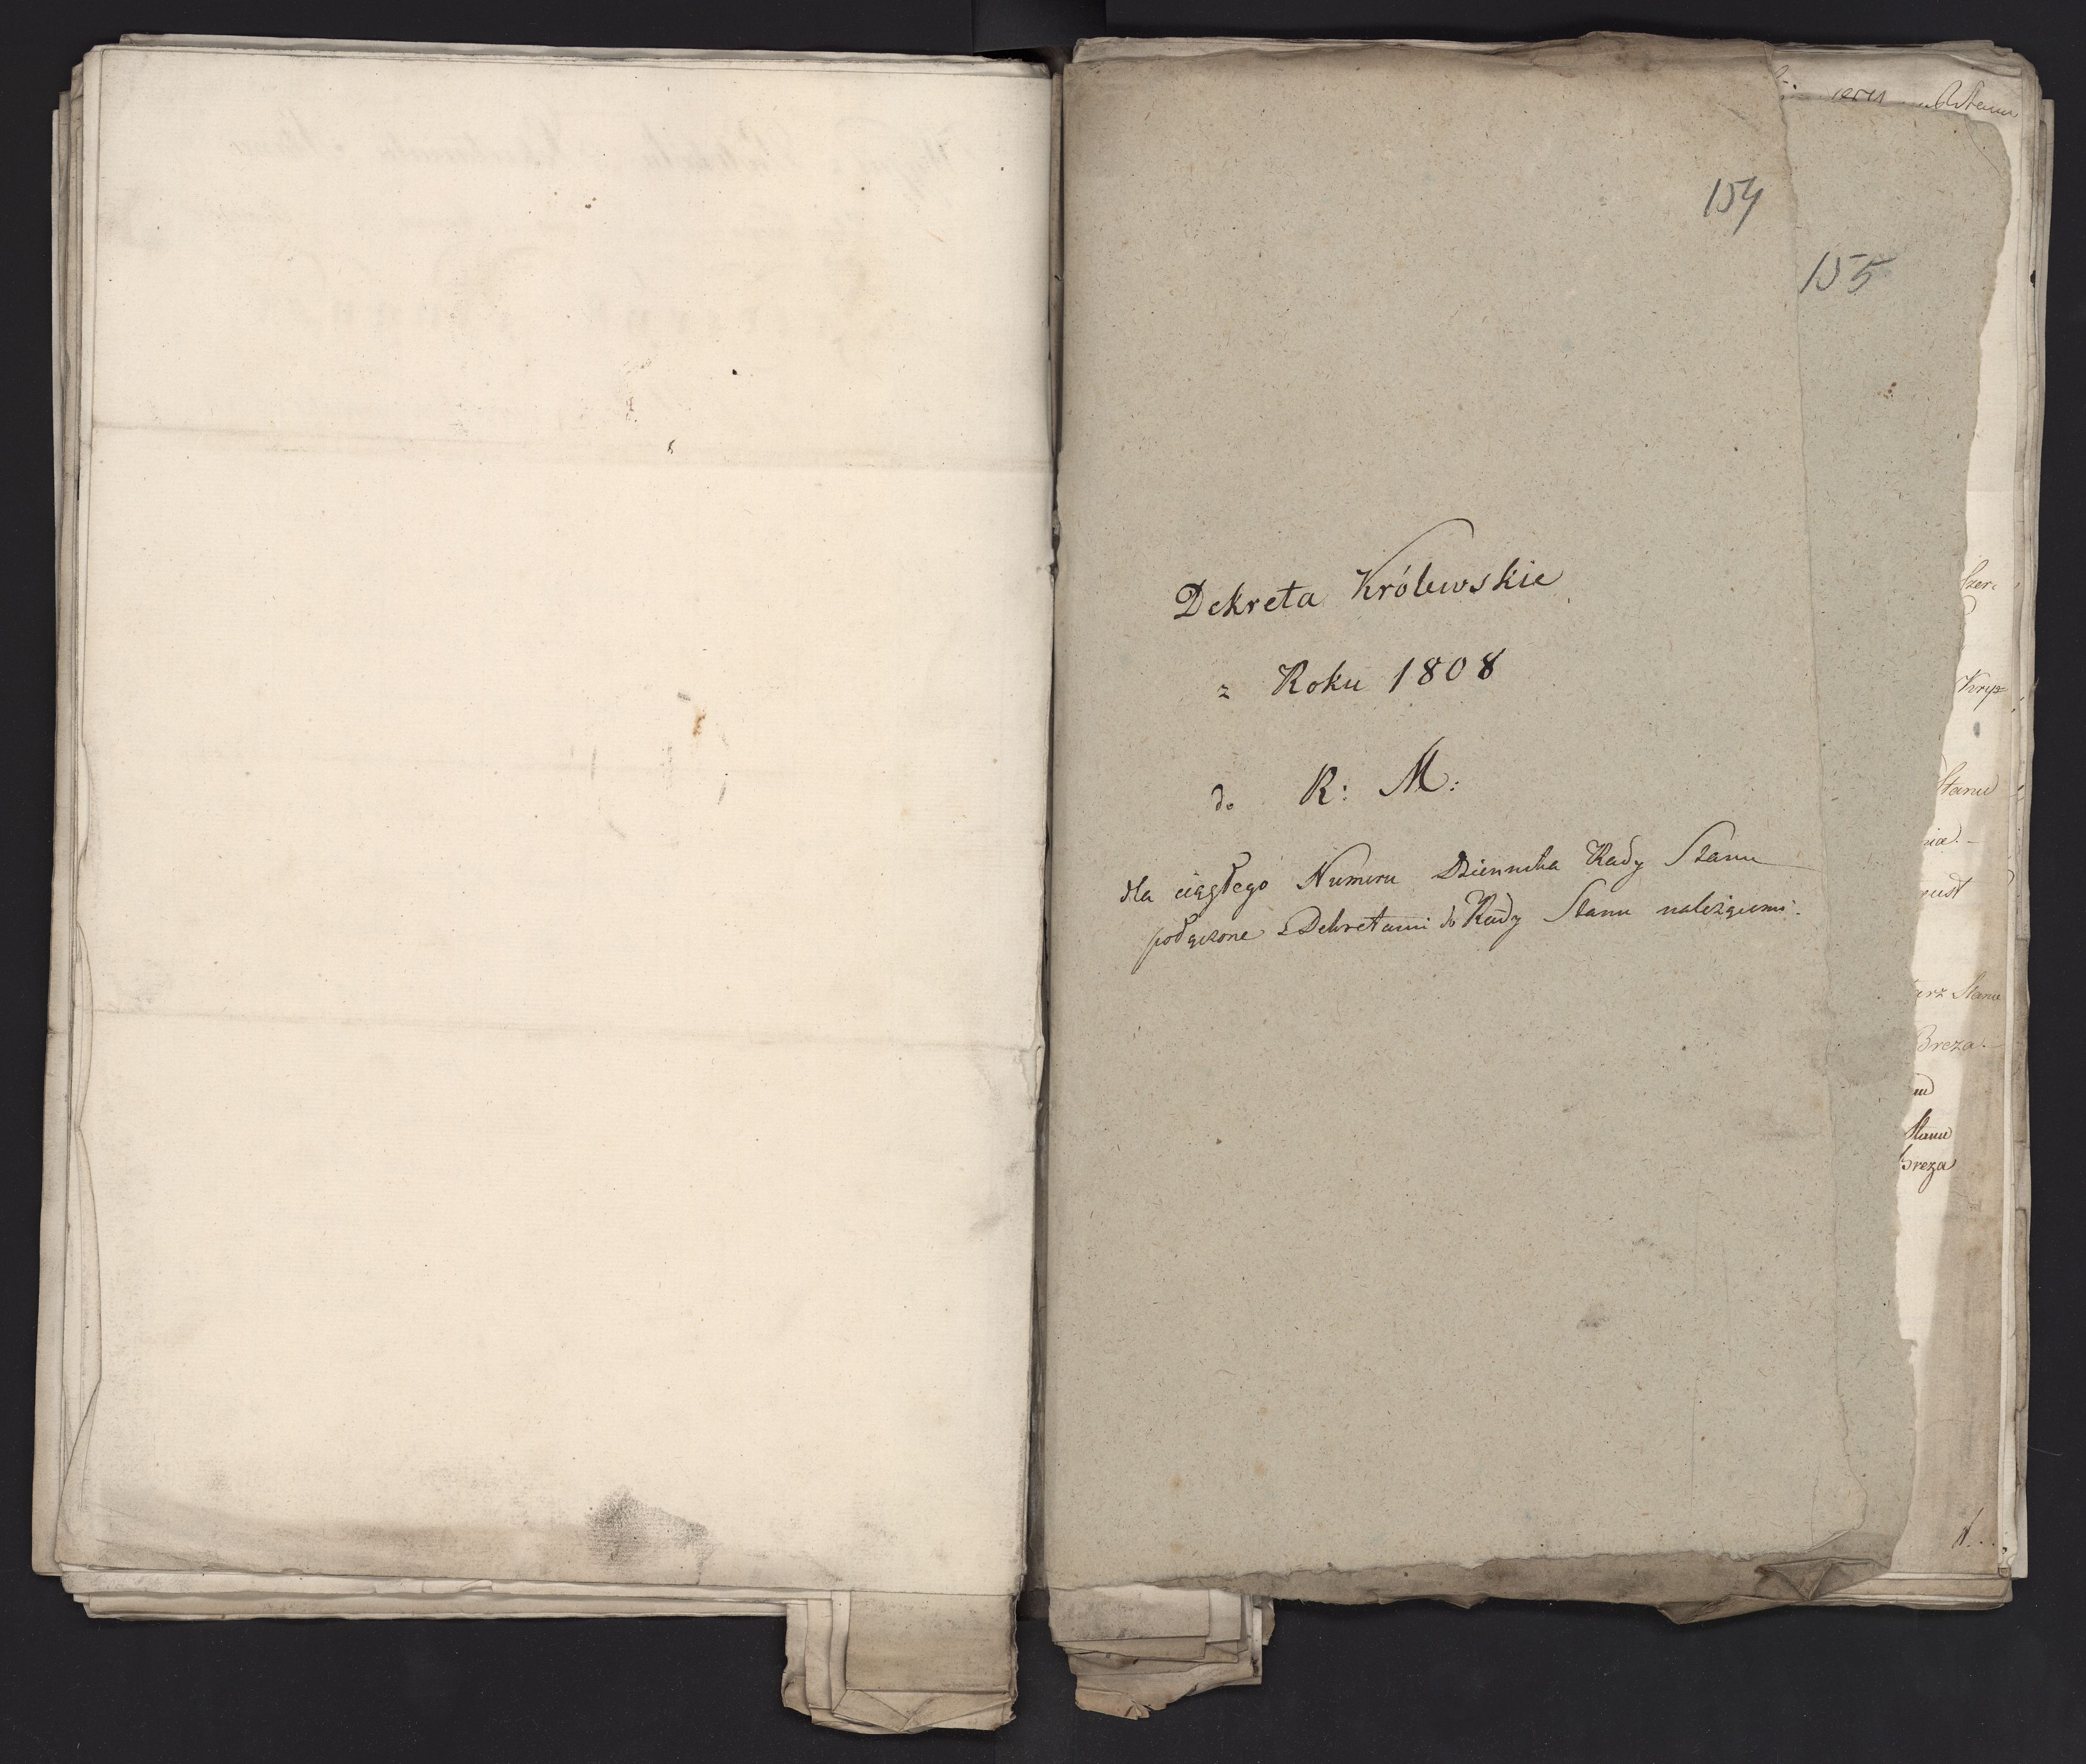 154
155
Dekreta Królewskie
z Roku 1808
do R: M:
dla ciągłego Numeru Dziennika Rady Stanu
połączone z Dekretami do Rady Stanu należącemi.
Stanu
arz Stanu
Breza.
Stanu
Breza